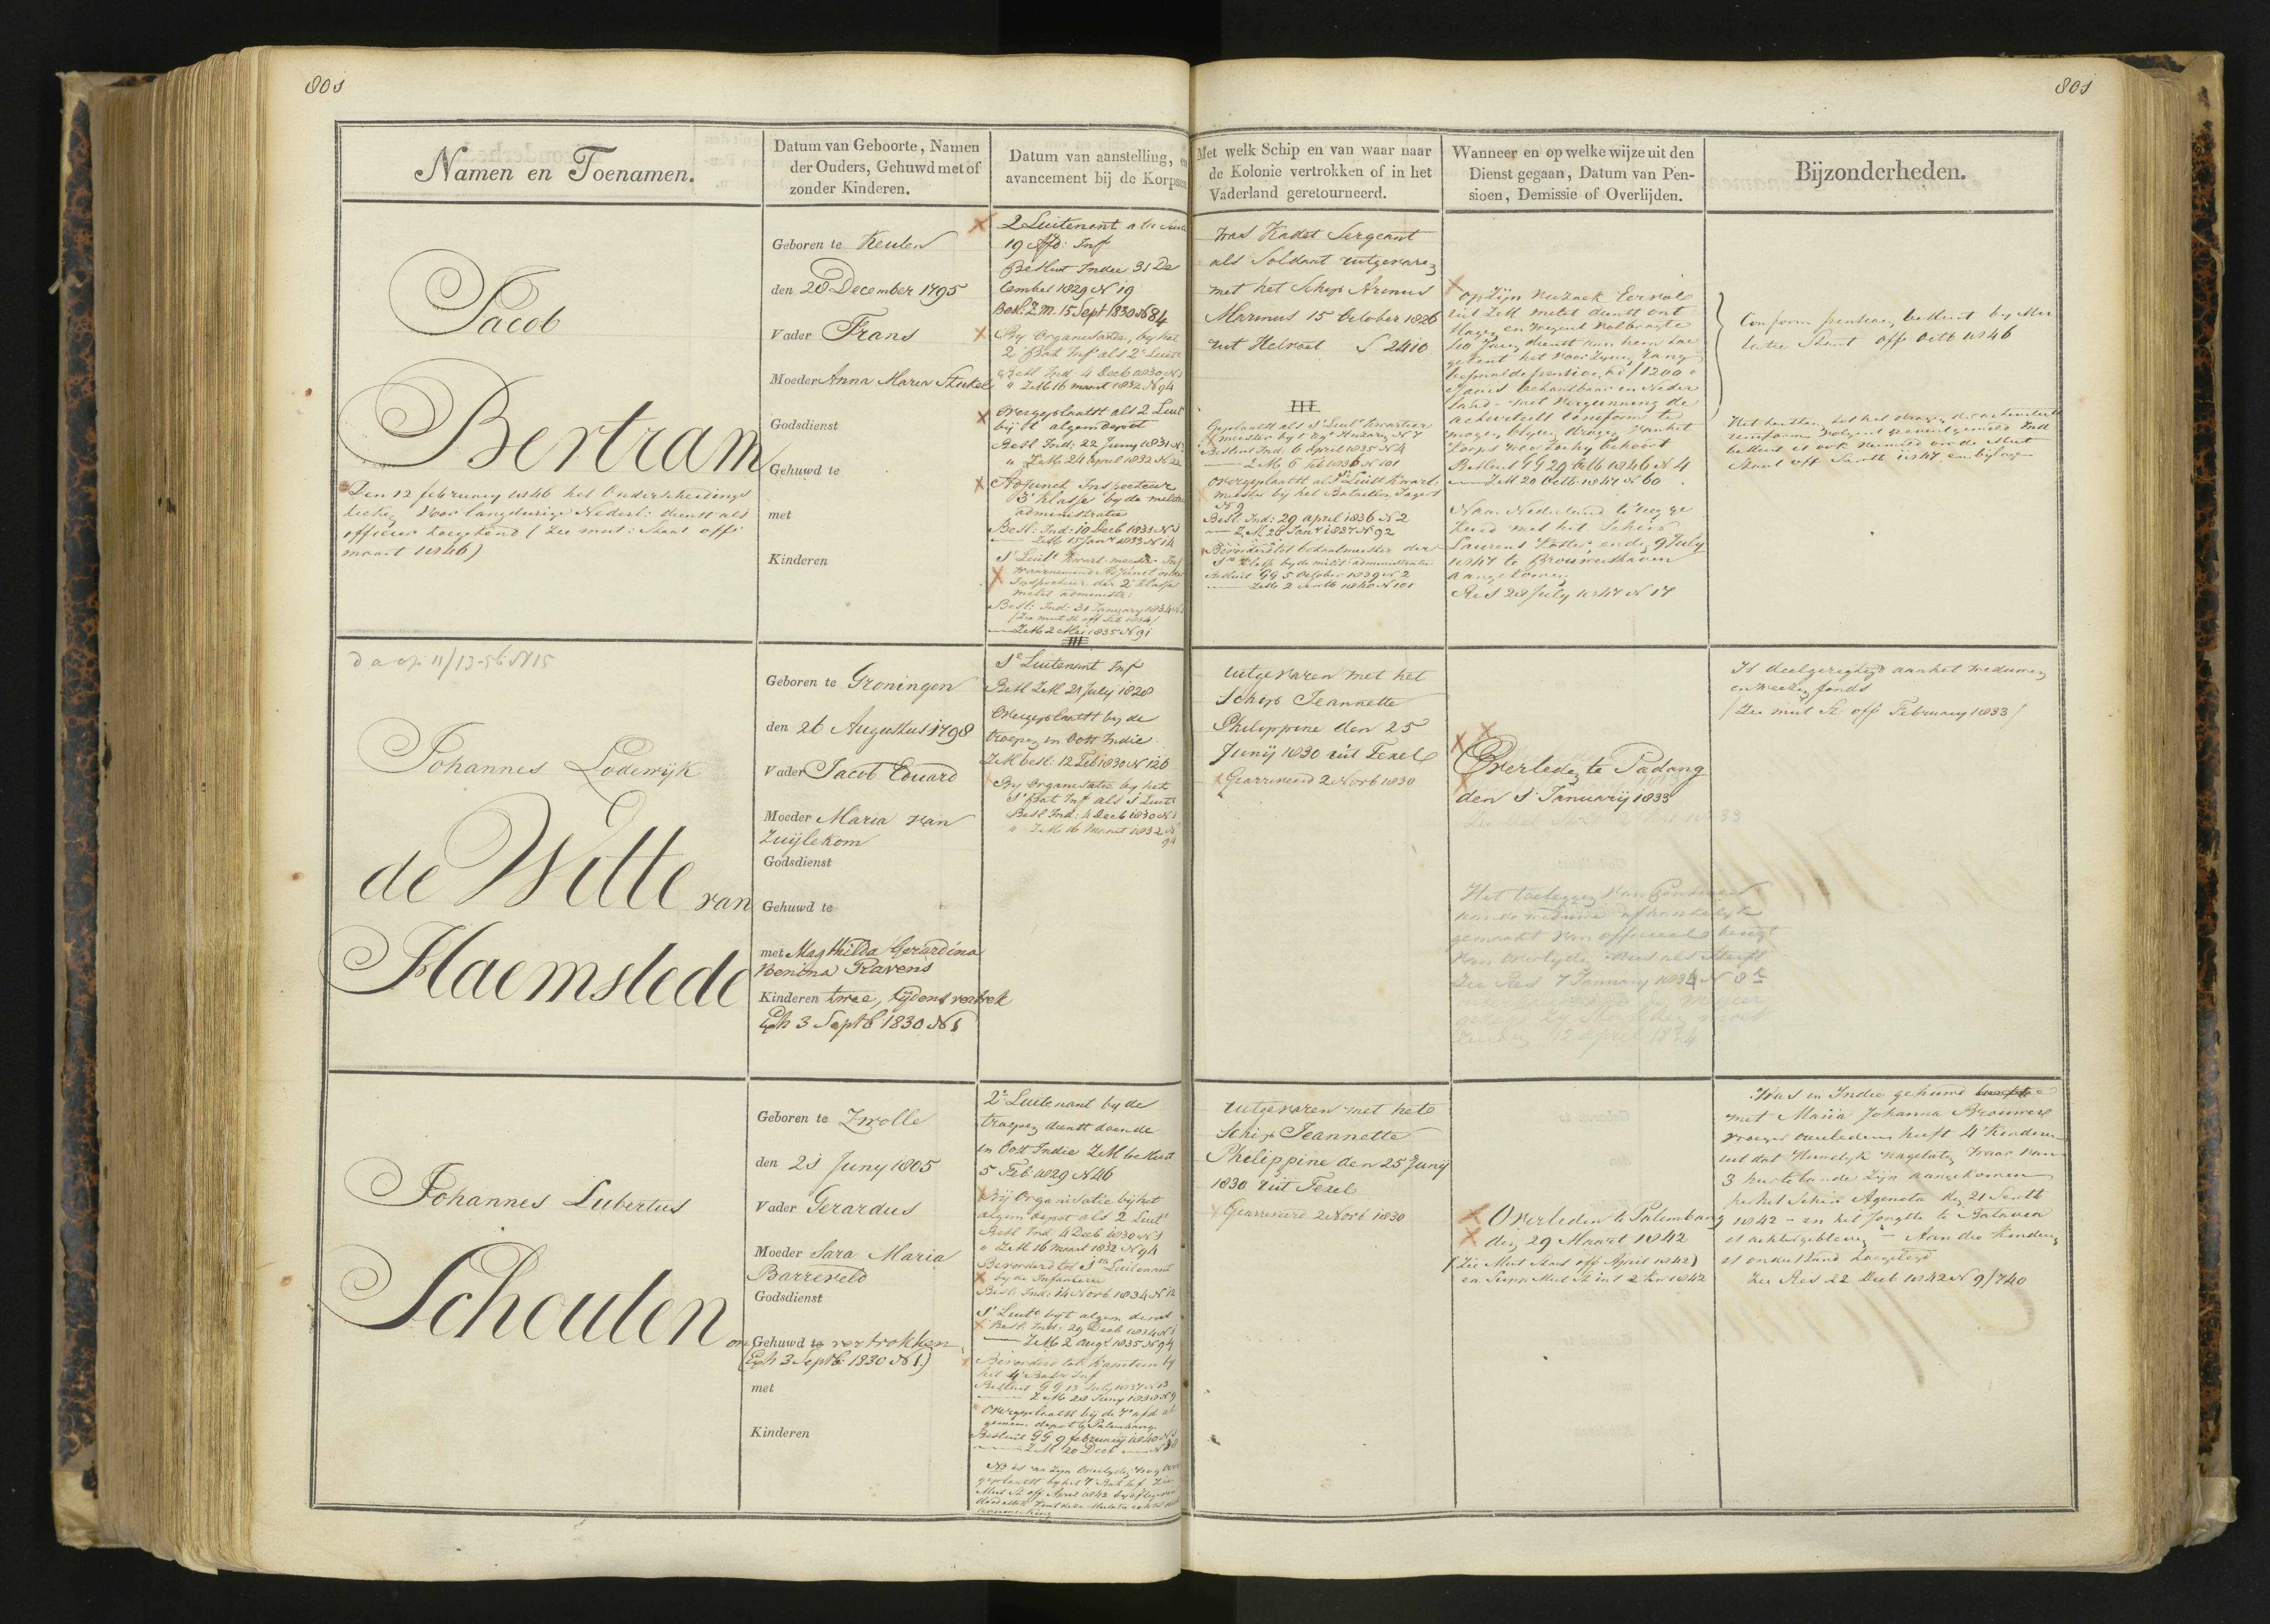 801
801
Namen en Toenamen.
Datum van Geboorte, Namen
der Ouders, Gehuwd met of
zonder Kinderen.
Datum van aanstelling, en
avancement bij de Korpsen
Met welk Schip en van waar naar
de Kolonie vertrokken of in het
Vaderland geretourneerd.
Wanneer en op welke wijze uit den
Dienst gegaan, Datum van Pen-
sioen, Demissie of Overlijden.
Bijzonderheden.
Jacob
Bertram
Den 12 february 1846 het Onderscheidings
teeken voor langdurige Nederl: dienst als
officier toegekend (Zie mut: Staat offi
maart 1846)
Geboren te Keulen
den 28 December 1795
Vader Frans
Moeder Anna Maria
Godsdienst
Gehuwd te
met
Kinderen
2 Luitenant
19 Afd: Inf
Besluit Indie 31 De
cember 1829 N 19
Besl: Z.M. 15 Sept 1830 N 84
By Organisatie, by het
2 Bat Inf als 2e Luit
Besl Ind 4 Decb 1830 N 1
" ZM 16 maart 1832 N 94
Overgeplaatst als 2 Luit
bij 't algem depot
Besl Ind: 22 Juny 1831 N
" ZM 24 April 1832 N 22
Adjunct Inspecteur
3e klasse by de militre
administratie
Besl: Ind: 19 Decb 1831 N 1
ZM 15 Jany 1833 N 14
1e Luit kwart meester Inf
waarnemend Adjunct onder
Inspecteur der 2e klasse
milit administr:
Besl: Ind: 31 January 1834 N
ZM 2 Mei 1835 N 91
Was Kadet Sergeant
als Soldaat uitgevaren
met het Schip Arinus
Marinus 15 October 1826
uit Helvoet S 2410
Geplaatst als 1e Luit kwartier
meester by t Reg Huzaren N 7
Besluit Ind: 6 April 1835 N 4
ZM 6 feb 1836 N 101
overgeplaatst als 1e Luit kwart:
meester bij het Bataillon Jagers
N 9
Besl Ind: 29 april 1836 N 2
ZM 26 Jany 1837 N 92
Bevorderd tot betaalmeester der
1e klasse by de milit administratie
Besluit GG 5 October 1839 N 2
op Zijn verzoek Eervol
uit ZM milit dienst ont
slagen en wegens volbragte
dienst aan hem toe
gekent het voor zynen rang
bepaalde pensioen ad f 1200
's Jaars betaalbaar in Neder
land - met vergunning de
activiteits uniform te
mogen blyven dragen van het
korps waar toe hy behoort
Besluit GG 29 Octb 1846 N 4
ZM 20 Octb 1847 N 60
Naar Nederland terug ge
keerd met het Schip
Laurens Koster, en den 9 July
1847 te Brouwershaven
aangekomen
Res 28 July 1847 N 17
Conform pensioen besluit by Mu
tatie Staat off Octb 1846
Johannes Lodewijk
de Witte van
Haemstede
Geboren te Groningen
den 26 Augustus 1798
Vader Jacob Eduard
Moeder Maria van
Zuijlekom
Godsdienst
Gehuwd te
met Magthilda Gerardina
Benina Ravens
Kinderen twee, tijdens vertrek
Exh 3 Septb 1830 N 1
1e Luitenant Inf
Besl ZM 21 July 1828
Overgeplaatst by de
troepen in Oost Indie
ZM besl: 12 Feb 1830 N 126
By Organisatie by het
1e Bat Inf als 1 Luit
Besl Ind: 4 Decb 1830 N 1
" ZM 16 Maart 1832 N
94
uitgevaren met het
Schip Jeannette
Philippine den 25
Junij 1830 uit Texel
Gearriveerd 2 Novb 1830
Overleden te Padang
den 1 Januarij 1833
Het toeleggen van Pensioen
aan de weduwe afhankelijk
gemaakt van officieel berigt
van overlyden
Zie Res 7 January 1834 N 8
12 april 1834
Is deelgeregtigd aan het weduwen
en weezen fonds
(Zie mut St: off February 1833)
Johannes Lubertus
Schouten
Geboren te Zwolle
den 21 Juny 1805
Vader Gerardus
Moeder Sara Maria
Barreveld
Godsdienst
on Gehuwd te vertrokken
(Exh 3 Septb: 1830 N 1.)
met
Kinderen
2e Luitenant by de
troepen dienst doende
in Oost Indie ZM besluit
5 Feb 1829 N 46
Bij Organisatie bij het
algem depot als 2 Luit
Besl Ind 4 Decb 1830 N 1
" ZM 16 Maart 1832 N 94
Bevorderd tot 1en Luitenant
by de Infanterie
Besl: Ind: 14 Novb 1834 N 12
1e Luit by t algem depot
Besl: Ind: 29 Decb 1834 N 1
ZM 2 Augt 1835 N 94
Bevorderd tot Kapitein by
het 4e Bat Inf
Besluit GG 13 July 1837 N 13
ZM 28 Juny 1838 N 9
Overgeplaatst bij de 7e afd al
gemeen depot te Palembang
Besluit GG 9 february 1840 N
ZM 20 Decb
uitgevaren met het
Schip Jeannette
Philippine den 25 Junij
1830 uit Texel
Gearriveerd 2 Novb 1830
Overleden te Palembang
den 29 Maart 1842
(Zie Mut Staat off April 1842)
Was in Indie gehuwd
met Maria Johanna Brouwer
vroeger overleden heeft 4 Kinderen
uit dat Huwelyk nagelaten waar van
3 hier te lande zijn aangekomen
per het Schip Agenota den 21 Septb
1842 - en het jongste te Batavia
is achtergebleven - Aan die kinderen
is onderstand toegelegd
Zie Res 22 Decb 1842 N 9/740